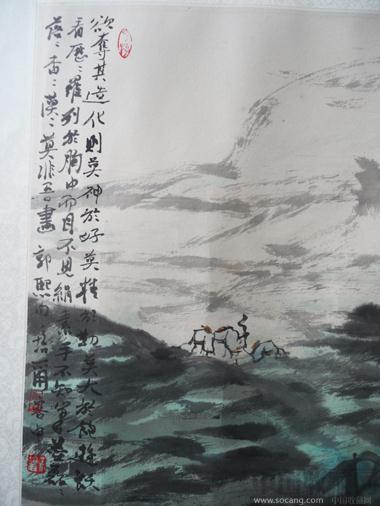 欲奪其造化則莫神於好莫精於勤莫大於飽遊飫
看歷〻羅列於胸中而目不見絹素手不知筆墨磊〻
落〻杳〻漠〻莫非吾畫 郭熙
www.socang.com 中国收藏网